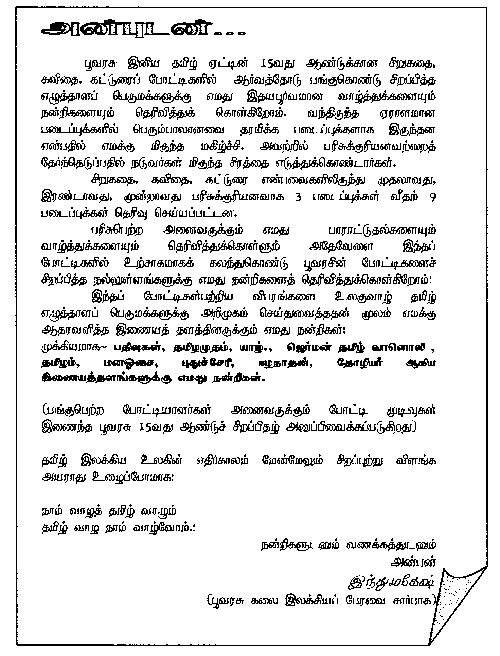 அன்புடன்...
பூவரசு இனிய தமிழ் ஏட்டின் 15வது ஆண்டுக்கான சிறுகதை,
கவிதை, கட்டுரைப் போட்டிகளில் ஆர்வத்தோடு பங்குகொண்டு சிறப்பித்த
எழுத்தாளப் பெருமக்களுக்கு எமது இதயபூர்வமான வாழ்த்துக்களையும்
நன்றிகளையும் தெரிவித்துக் கொள்கிறோம். வந்திருந்த ஏராளமான
படைப்புக்களில் பெரும்பாலானவை தரமிக்க படைப்புக்களாக இருந்தன
என்பதில் எமக்கு மிகுந்த மகிழ்ச்சி. அவற்றில் பரிசுக்குரியனவற்றைத்
தேர்ந்தெடுப்பதில் நடுவர்கள் மிகுந்த சிரத்தை எடுத்துக்கொண்டார்கள்.
சிறுகதை, கவிதை, கட்டுரை என்பவைகளிலிருந்து முதலாவது,
இரண்டாவது, மூன்றாவது பரிசுக்குரியனவாக 3 படைப்புக்கள் வீதம் 9
படைப்புக்கள் தெரிவு செய்யப்பட்டன.
பரிசுபெற்ற அனைவருக்கும் எமது பாராட்டுதல்களையும்
வாழ்த்துக்களையும் தெரிவித்துக்கொள்ளும் அதேவேளை இந்தப்
போட்டிகளில் உற்சாகமாகக் கலந்துகொண்டு பூவரசின் போட்டிகளைச்
சிறப்பித்த நல்லுள்ளங்களுக்கு எமது நன்றிகளைத் தெரிவித்துக்கொள்கிறோம்!
இந்தப் போட்டிகள்பற்றிய விபரங்களை உலகுவாழ் தமிழ்
எழுத்தாளப் பெருமக்களுக்கு அறிமுகம் செய்துவைத்ததன் மூலம் எமக்கு
ஆதரவளித்த இணையத் தளத்தினருக்கும் எமது நன்றிகள்!
முக்கியமாக~ பதிவுகள், தமிழமுதம், யாழ்., ஜெர்மன் தமிழ் வானொலி ,
தமிழம், மனஓசை, புதுச்சேரி, ஈழநாதன், தோழியர் ஆகிய
இணையத்தளங்களுக்கு எமது நன்றிகள்.
(பங்குபெற்ற போட்டியாளர்கள் அனைவருக்கும் போட்டி முடிவுகள்
இணைந்த பூவரசு 15வது ஆண்டுச் சிறப்பிதழ் அனுப்பிவைக்கப்படுகிறது)
தமிழ் இலக்கிய உலகின் எதிர்காலம் மேன்மேலும் சிறப்புற்று விளங்க
அயராது உழைப்போமாக!
நாம் வாழத் தமிழ் வாழும்
தமிழ் வாழ நாம் வாழ்வோம்.!
நன்றிகளுடனும் வணக்கத்துடனும்
அன்பன்
இந்துமகேஷ்
(பூவரசு கலை இலக்கியப் பேரவை சார்பாக)